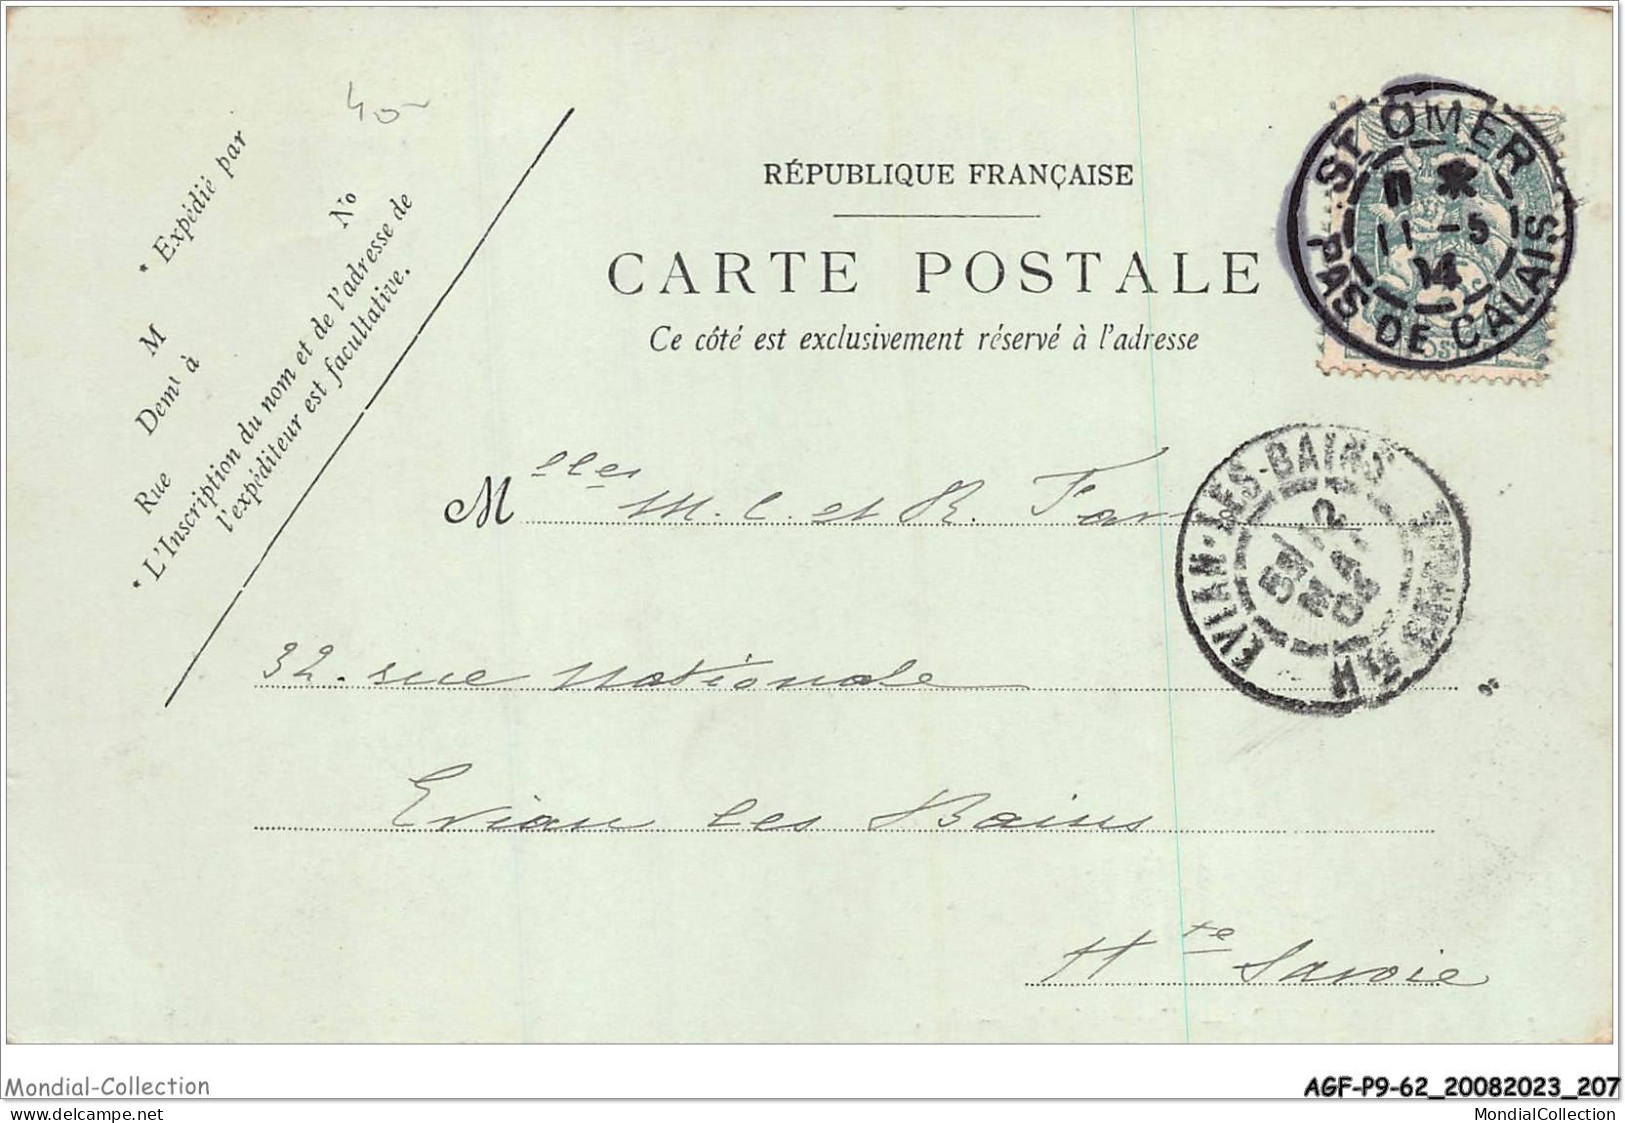 40-
* Expédié par
M
No
Demt à
Rue
* L'Inscription du nom et de l'adresse de
l'expéditeur est facultative.
RÉPUBLIQUE FRANÇAISE
CARTE POSTALE
Ce côté est exclusivement réservé à l'adresse
ST OMER
11 -5
04
PAS DE CALAIS
Melles M. C. et R.
EVIAN-LES-BAINS
12
MAI
32. rue Nationale
Evian les Bains
Hte Savoie
Mondial-Collection
AGF-P9-62_20082023_207
delcampe.net
MondialCollection